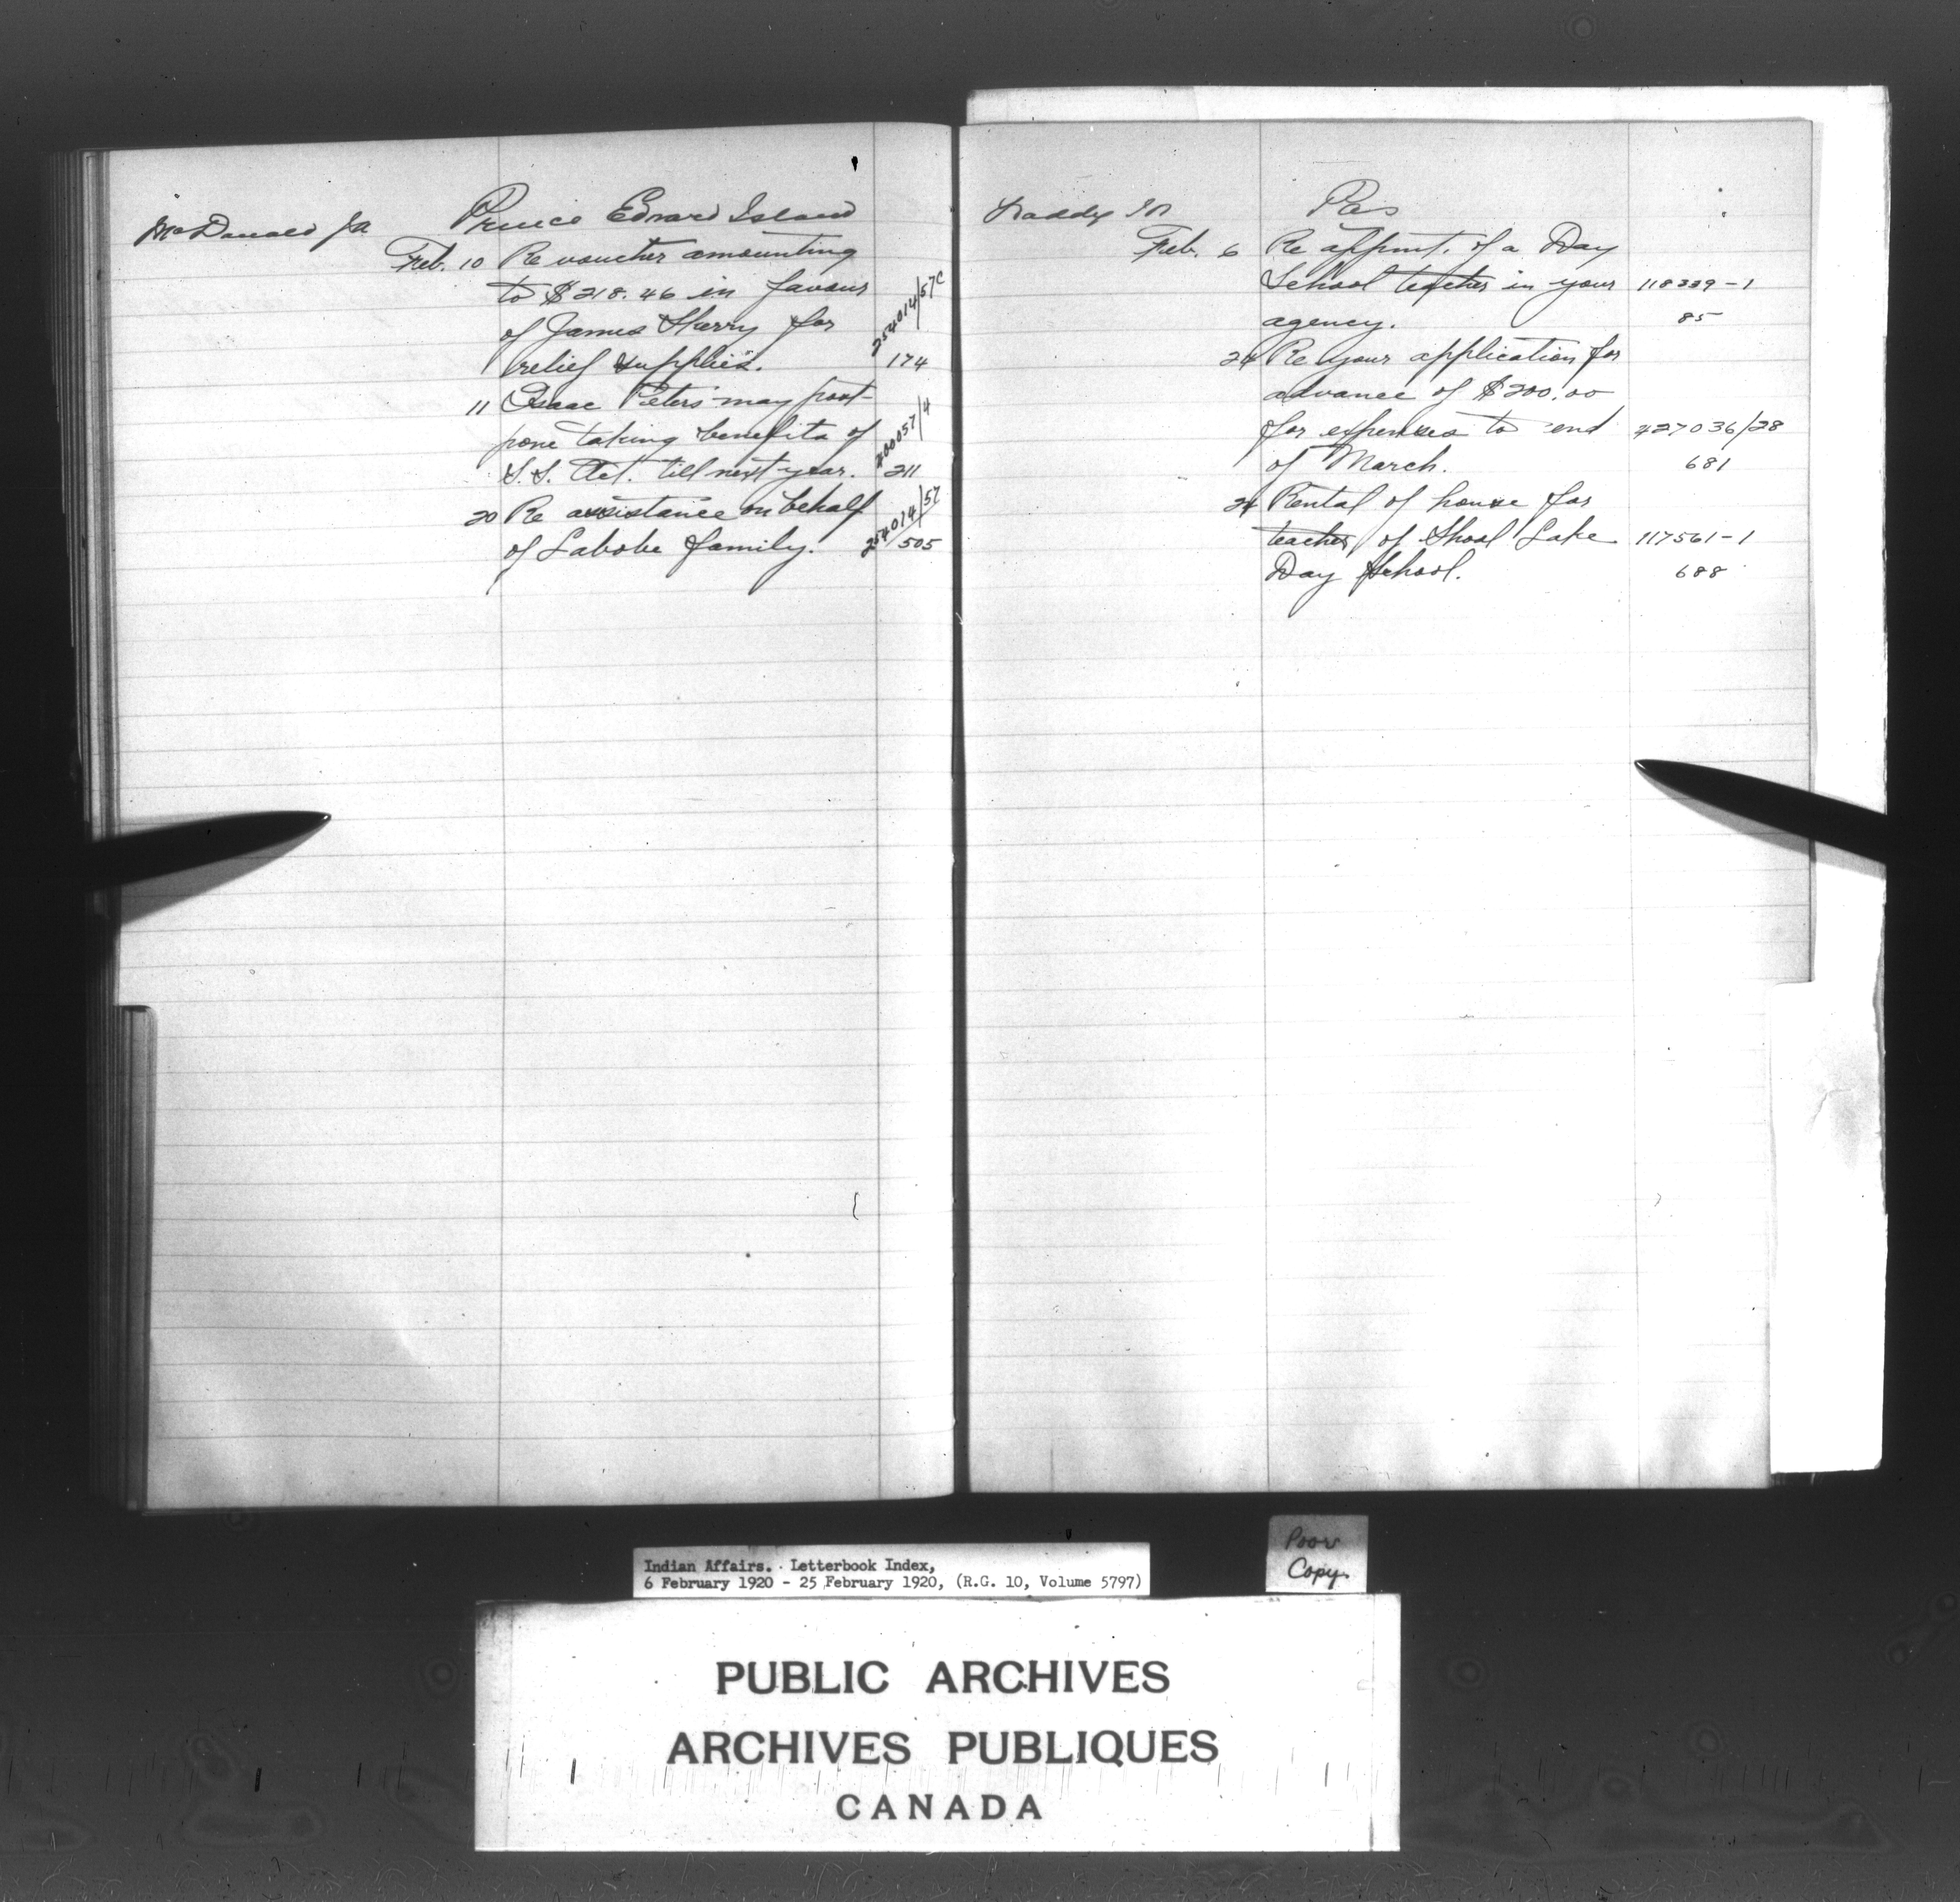 McDonald Jn Prince Edward Island
Feb. 10 Re voucher amounting
to $218.46 in favour
of James Sherry for 254014/57C
relief supplies. 174
11 Isaac Peters may post-
pone taking benefits of 200057/4
S.S. Act. till next year. 211
20 Re assistance on behalf 254014/57
of Labobe family. 505
Waddy Pas
Feb. 6 Re appmt. of a Day
School teacher in your 118339-1
agency. 85
24 Re your application for
advance of $200.00
for expenses to end 427036/28
of March. 681
24 Rental of house for
teacher of Shoal Lake 117561-1
Day School. 688
Indian Affairs. Letterbook Index,
6 February 1920 - 25 February 1920, (R.G. 10, Volume 5797)
Poor
Copy
PUBLIC ARCHIVES
ARCHIVES PUBLIQUES
CANADA